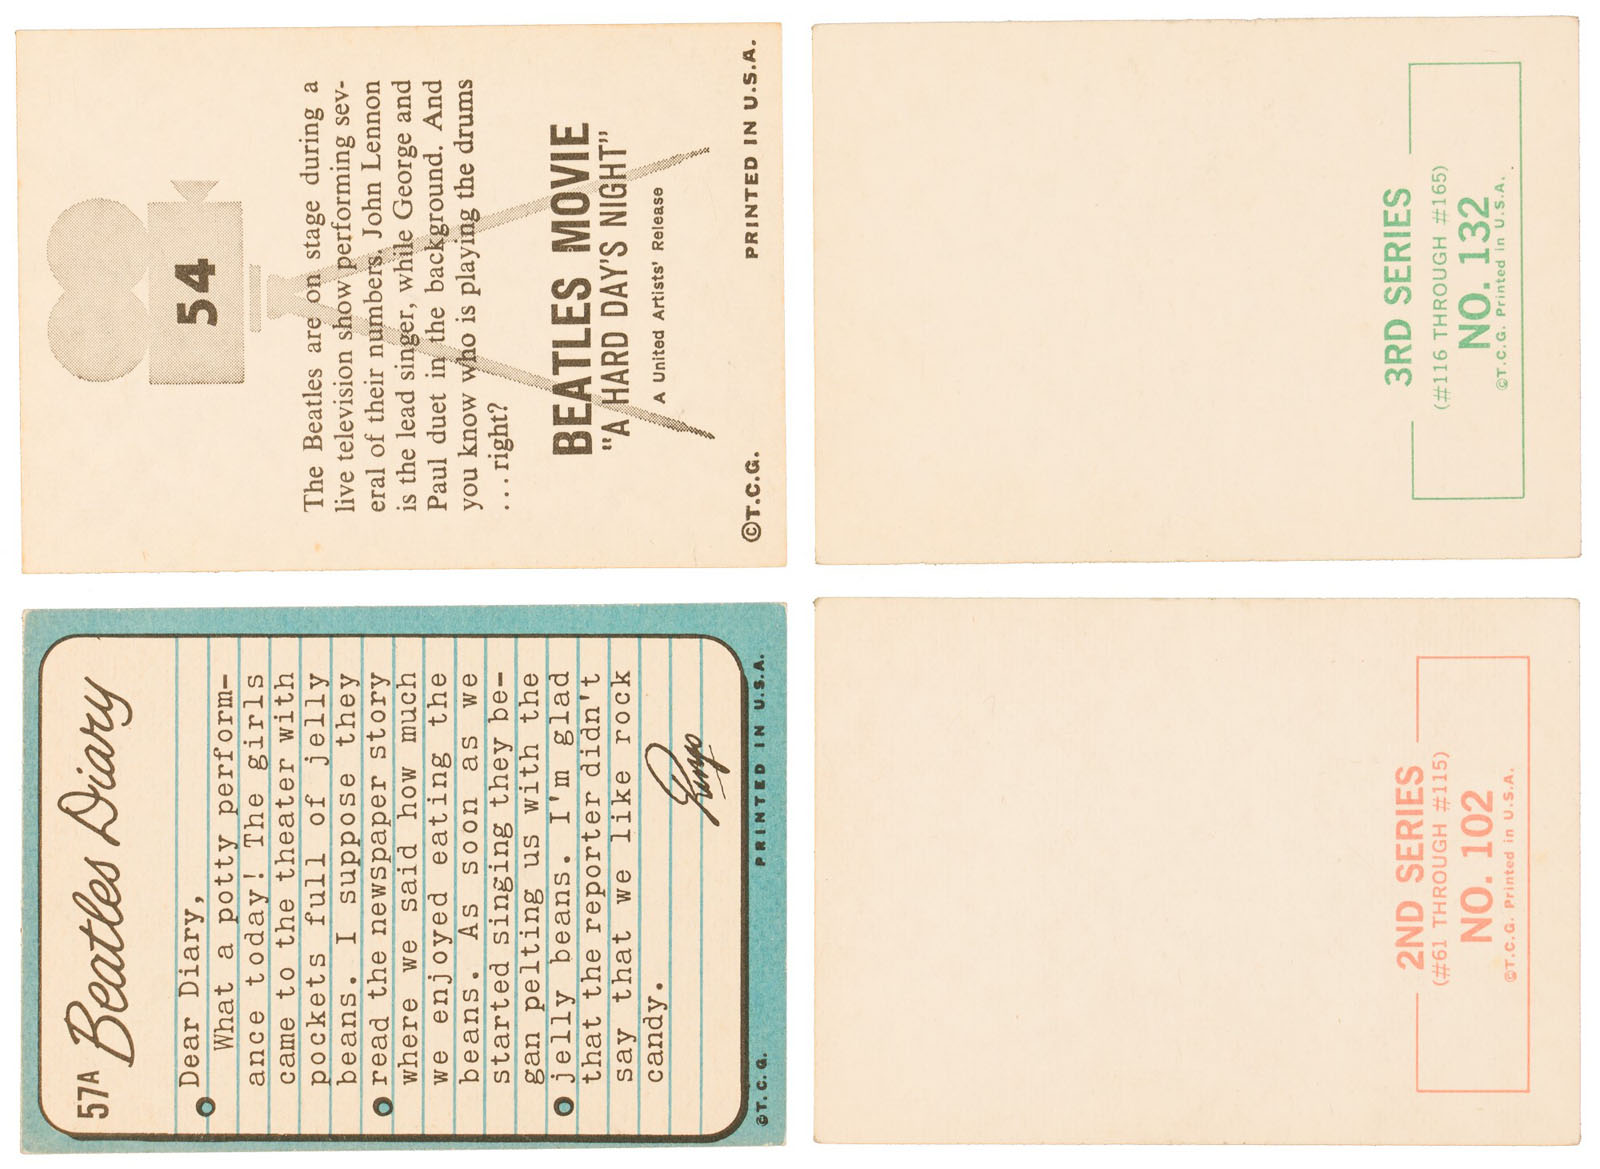 54
The Beatles are on stage during a
live television show performing sev-
eral of their numbers. John Lennon
is the lead singer, while George and
Paul duet in the background. And
you know who is playing the drums
... right?
BEATLES MOVIE
"A HARD DAY'S NIGHT"
A United Artists' Release
©T.C.G. PRINTED IN U.S.A.
3RD SERIES
(#116 THROUGH #165)
NO. 132
©T.C.G. Printed in U.S.A.
57A Beatles Diary
Dear Diary,
What a potty perform-
ance today! The girls
came to the theater with
pockets full of jelly
beans. I suppose they
read the newspaper story
where we said how much
we enjoyed eating the
beans. As soon as we
started singing they be-
gan pelting us with the
jelly beans. I'm glad
that the reporter didn't
say that we like rock
candy.
Ringo
©T.C.G. PRINTED IN U.S.A.
2ND SERIES
(#61 THROUGH #115)
NO. 102
©T.C.G. Printed in U.S.A.